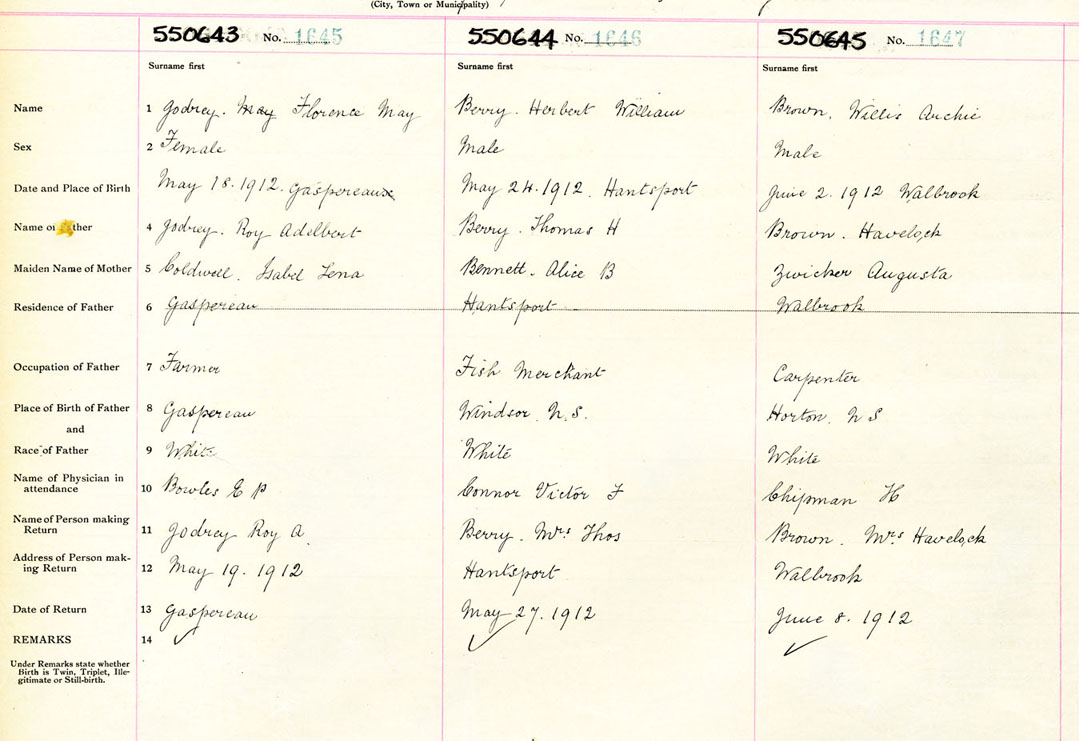 (City, Town or Municipality)
550643 No. 1645 550644 No. 1646 550645 No. 1647
Surname first Surname first Surname first
Name 1 Godrey. May Florence May Berry. Herbert William Brown, Willis Archie
Sex 2 Female Male Male
Date and Place of Birth May 18. 1912. Gaspereaux May 24. 1912. Hantsport June 2. 1912 Walbrook
Name of Father 4 Godrey. Roy Adelbert Berry. Thomas H Brown. Havelock
Maiden Name of Mother 5 Coldwell. Isabel Lena Bennett. Alice B Zwicker Augusta
Residence of Father 6 Gaspereau Hantsport Walbrook
Occupation of Father 7 Farmer Fish Merchant Carpenter
Place of Birth of Father 8 Gaspereau Windsor. N.S. Horton. N S
and
Race of Father 9 White White White
Name of Physician in
attendance 10 Bowles E P Connor Victor F Chipman H
Name of Person making
Return 11 Godrey Roy A. Berry. Mrs Thos Brown. Mrs Havelock
Address of Person mak-
ing Return 12 May 19. 1912 Hantsport Walbrook
Date of Return 13 Gaspereau May 27. 1912 June 8. 1912
REMARKS 14
Under Remarks state whether
Birth is Twin, Triplet, Ille-
gitimate or Still-birth.